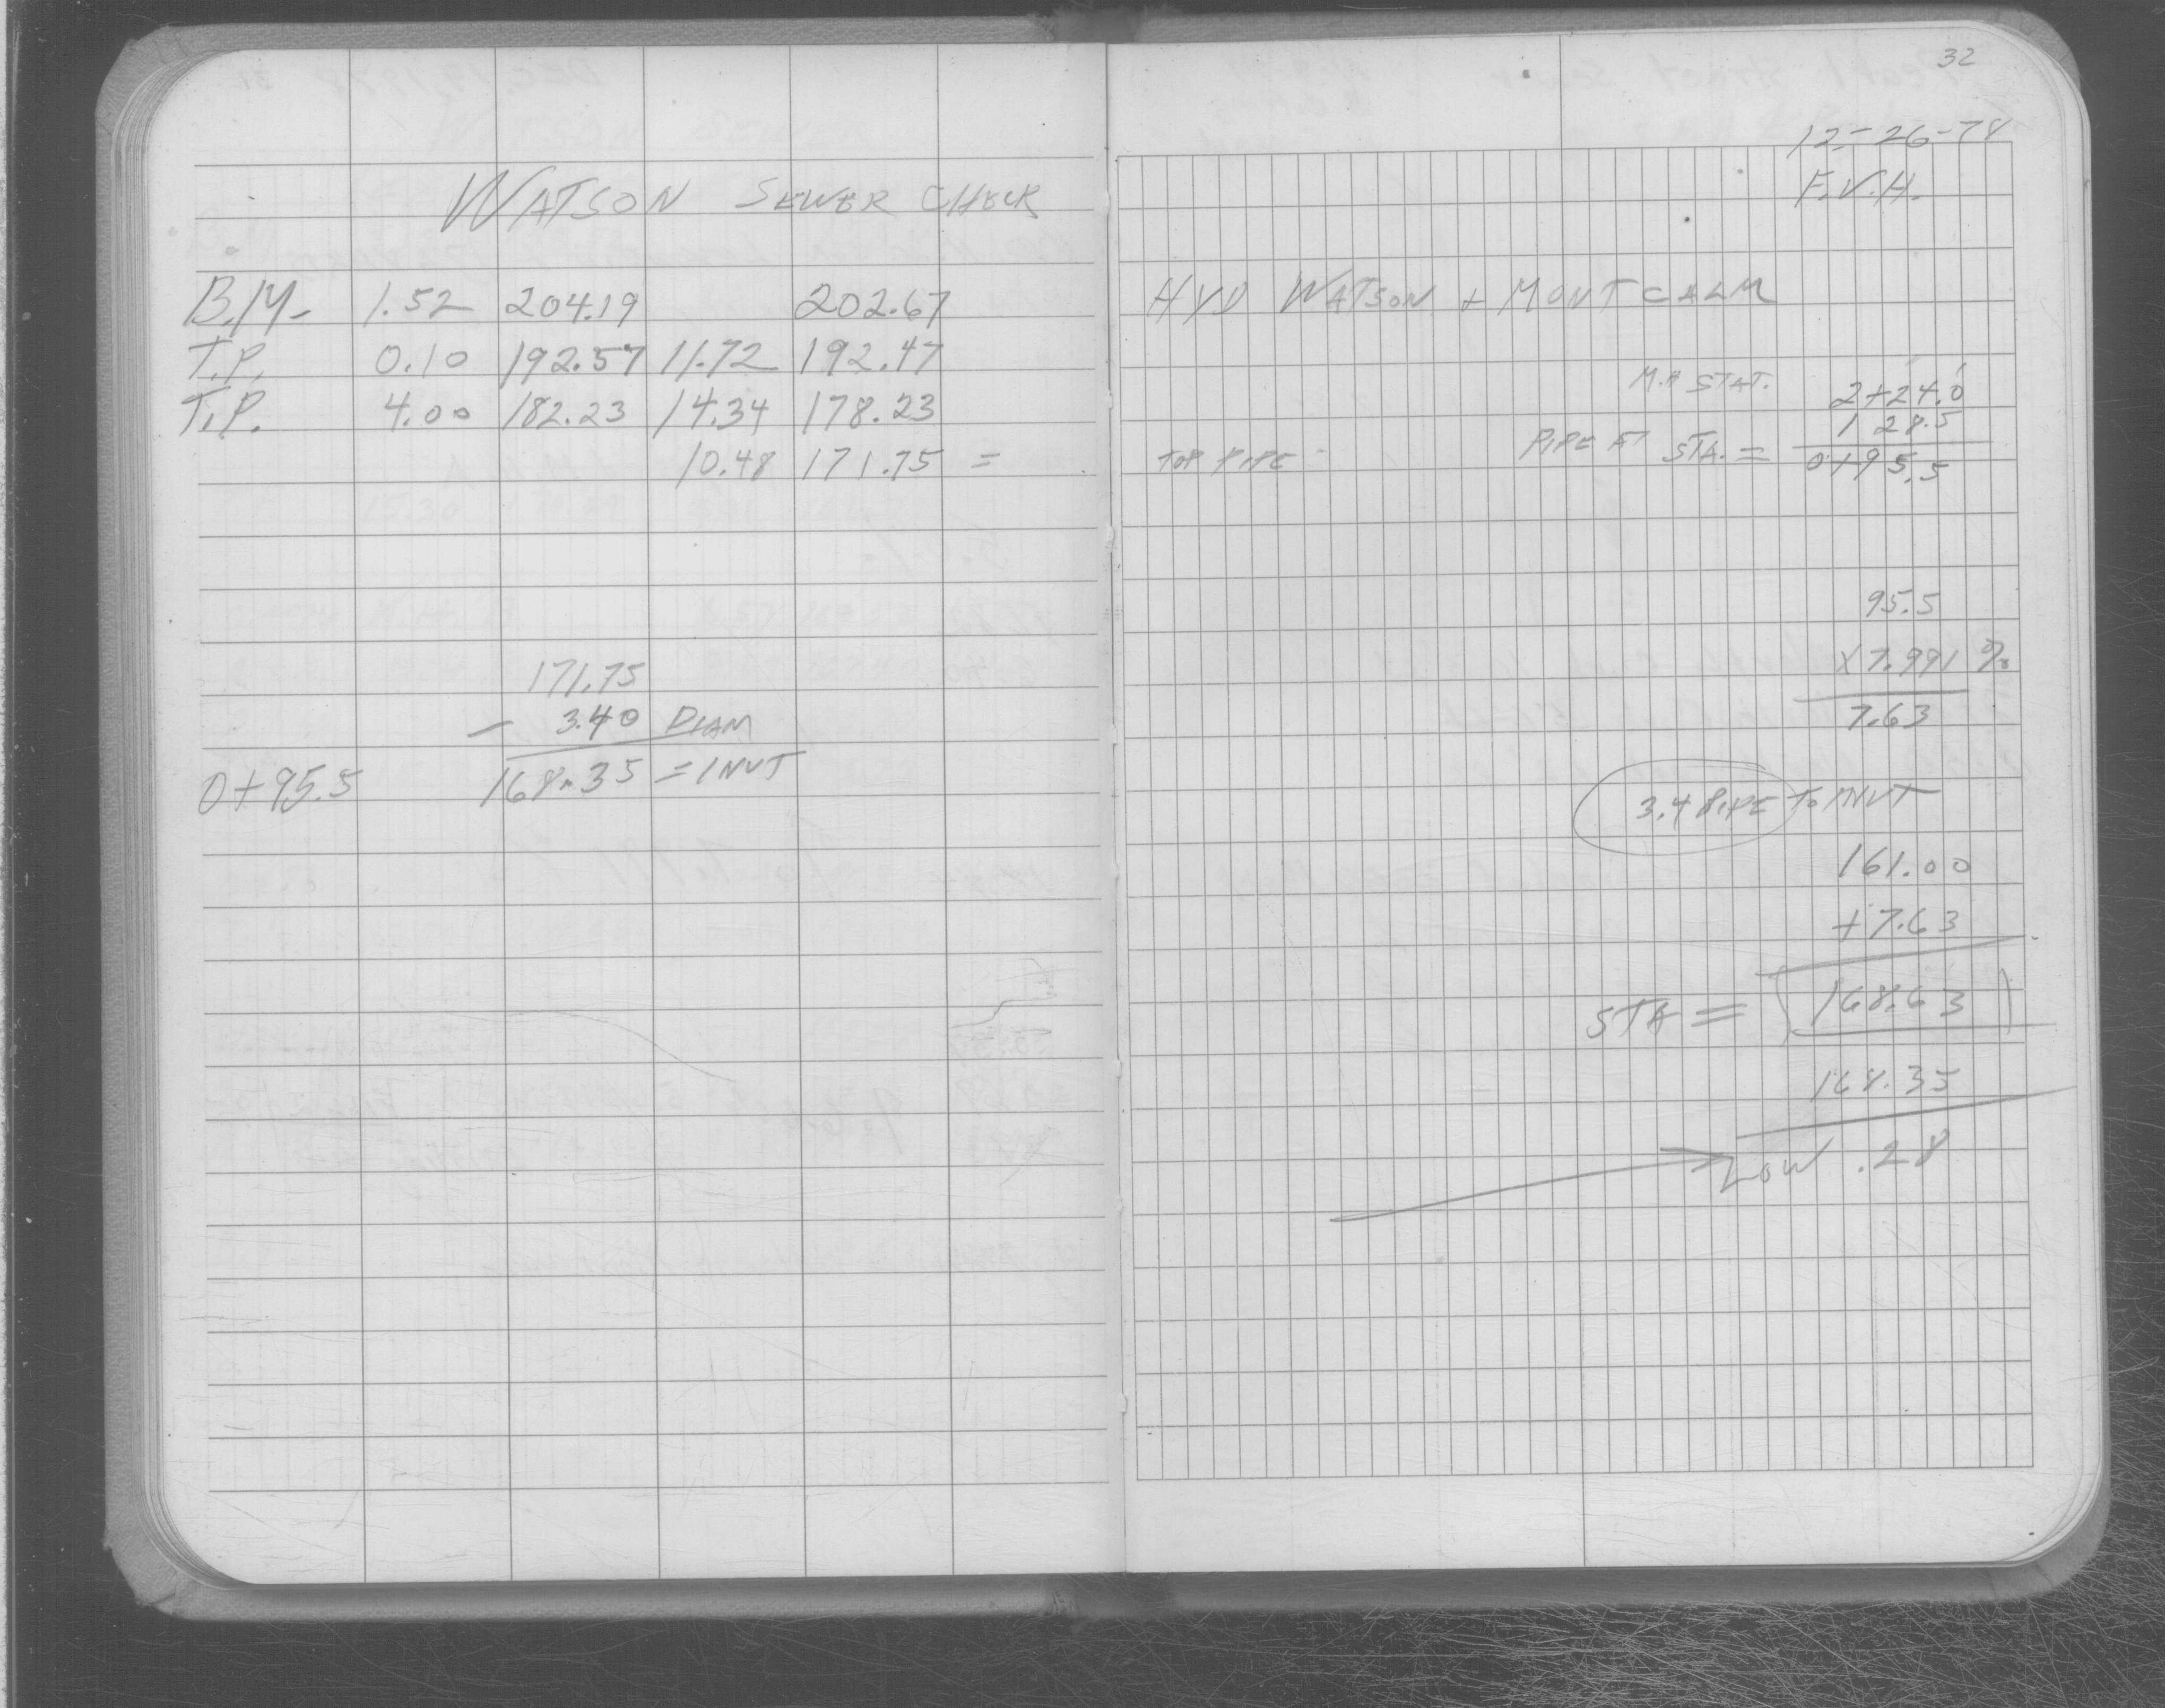 WATSON SEWER CHECK
B.M. 1.52 204.19 202.67
T.P. 0.10 192.57 11.72 192.47
T.P. 4.00 182.23 14.34 178.23
10.48 171.75 =
171.75
- 3.40 DIAM
0+95.5 168.35 = INVT
32
12-26-78
F.V.H.
HYD WATSON + MONTCALM
M.H STAT. 2+24.0
1 28.5
TOP PIPE PIPE AT STA. = 0+95.5
95.5
X7.991 %
7.63
3.4 PIPE TO INVT
161.00
+7.63
STA = 168.63
168.35
LOW .28